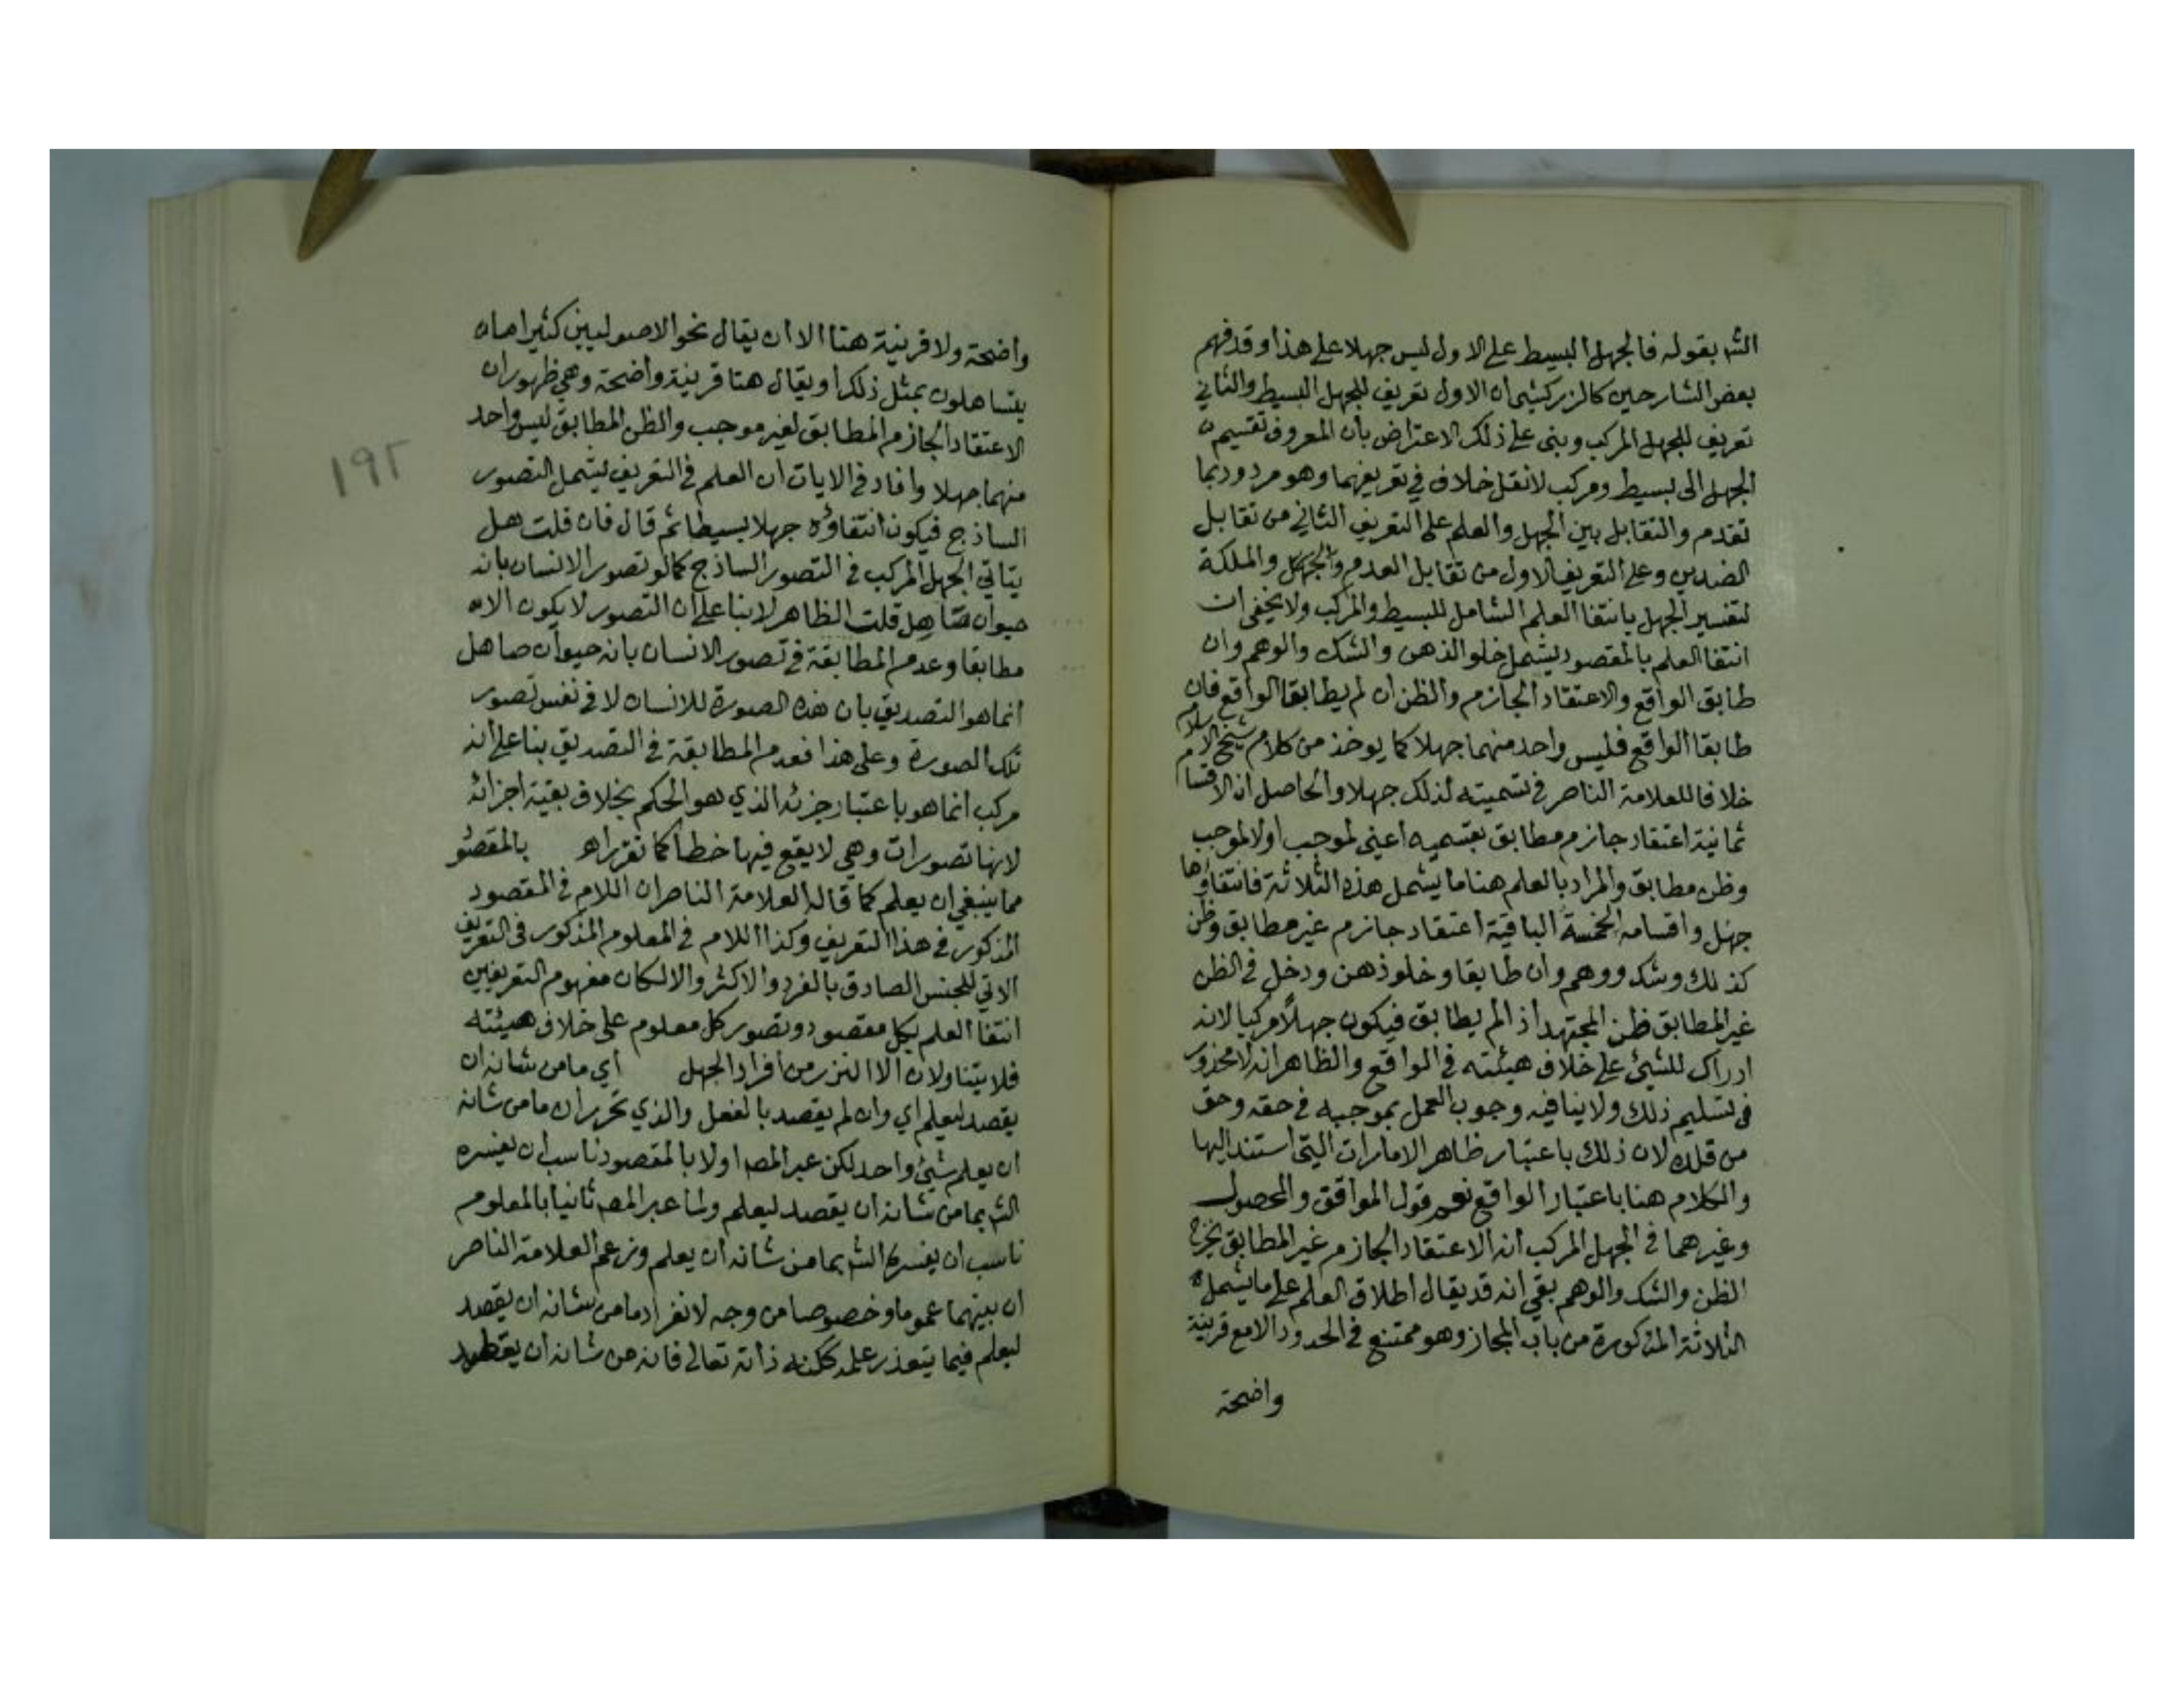 الشہ بقوله فالجهل البسيط على الاول ليس جهلا على هذا وقد فهم
بعض الشارحين كالزركشي ان الاول تعريف للجهل البسيط والثاني
تعريف للجهل المركب وبنى على ذلك الاعتراض بان المعروف تقسيم
الجهل الى بسيط ومركب لا نقل خلاف في تعريفهما وهو مردود بما
تقدم والتقابل بين الجهل والعلم على التعريف الثاني من تقابل
الضدين وعلى التعريف الاول من تقابل العدم والملكة
لتفسير الجهل بانتفا العلم الشامل للبسيط والمركب ولا يخفى ان
انتفا العلم بالمقصود يشمل خلو الذهن والشك والوهم وان
طابق الواقع والاعتقاد الجازم والظن ان لم يطابقا الواقع فان
طابقا الواقع فليس واحد منهما جهلا كما يوخذ من كلام شيخ الاسلام
خلافا للعلامة الناصر في تسميته لذلك جهلا والحاصل ان الاقسام
ثمانية اعتقاد جازم مطابق بقسميه اعنى لموجب اولا لموجب
وظن مطابق والمراد بالعلم هنا ما يشمل هذه الثلاثة فانتفاؤها
جهل واقسامه الخمسة الباقية اعتقاد جازم غير مطابق وظن
كذلك وشك ووهم وان طابقا وخلو ذهن ودخل في الظن
غير المطابق ظن المجتهد اذا لم يطابق فيكون جهلاً مركبا لانه
ادراك للشئ على خلاف هيئته في الواقع والظاهر انه لا محذور
فى تسليم ذلك ولا ينافيه وجوب العمل بموجبه في حقه وحق
من قلده لان ذلك باعتبار ظاهر الامارات التي استند اليها
والكلام هنا باعتبار الواقع نعم قول المواقف والمحصول
وغيرهما في الجهل المركب انه الاعتقاد الجازم غير المطابق يخرج
الظن والشك والوهم بقي انه قد يقال اطلاق العلم على ما يشمل
الثلاثة المذكورة من باب المجاز وهو ممتنع في الحدود الا مع قرينة
واضحة
واضحة ولا قرينة هنا الا ان يقال نحو الاصوليين كثيرا ما
يتساهلون بمثل ذلك او يقال هنا قرينة واضحة وهي ظهور ان
الاعتقاد الجازم المطابق لغير موجب والظن المطابق ليس واحد
منهما جهلا وافاد في الايات ان العلم في التعريف ليشمل التصور
الساذج فيكون انتفاؤه جهلا بسيطا ثم قال فان قلت هل
يتاتي الجهل المركب في التصور الساذج كما لو تصور الانسان بانه
حيوان صاهل قلت الظاهر لا بنا على ان التصور لا يكون الا
مطابقا وعدم المطابقة في تصور الانسان بانه حيوان صاهل
انما هو التصديق بان هذه الصورة للانسان لا في نفس تصور
تلك الصورة وعلى هذا فعدم المطابقة في التصديق بنا على انه
مركب انما هو باعتبار جزئه الذي هو الحكم بخلاف بقية اجزائه
لانها تصورات وهي لا يقع فيها خطا كما تقرر اهـ بالمقصود
مما ينبغي ان يعلم كما قاله العلامة الناصر ان اللام في المقصود
المذكور في هذا التعريف وكذا اللام في المعلوم المذكور في التعريف
الاتي للجنس الصادق بالفرد والاكثر والا لكان مفهوم التعريفين
انتفا العلم بكل مقصود وتصور كل معلوم على خلاف هيئته
فلا يتناولان الا النزر من افراد الجهل اي ما من شانه ان
يقصد ليعلم اي وان لم يقصد بالفعل والذي تحرر ان ما من شانه
ان يعلم شئ واحد لكن عبر المصـ اولا بالمقصود ناسب ان يفسره
الشہ بما من شانه ان يقصد ليعلم ولما عبر المصـ ثانيا بالمعلوم
ناسب ان يفسره الشہ بما من شانه ان يعلم وزعم العلامة الناصر
ان بينهما عموما وخصوصا من وجه لانفراد ما من شانه ان يقصد
ليعلم فيما يتعذر علمه ككنه ذاته تعالى فانه من شانه ان يقصد
١٩٢